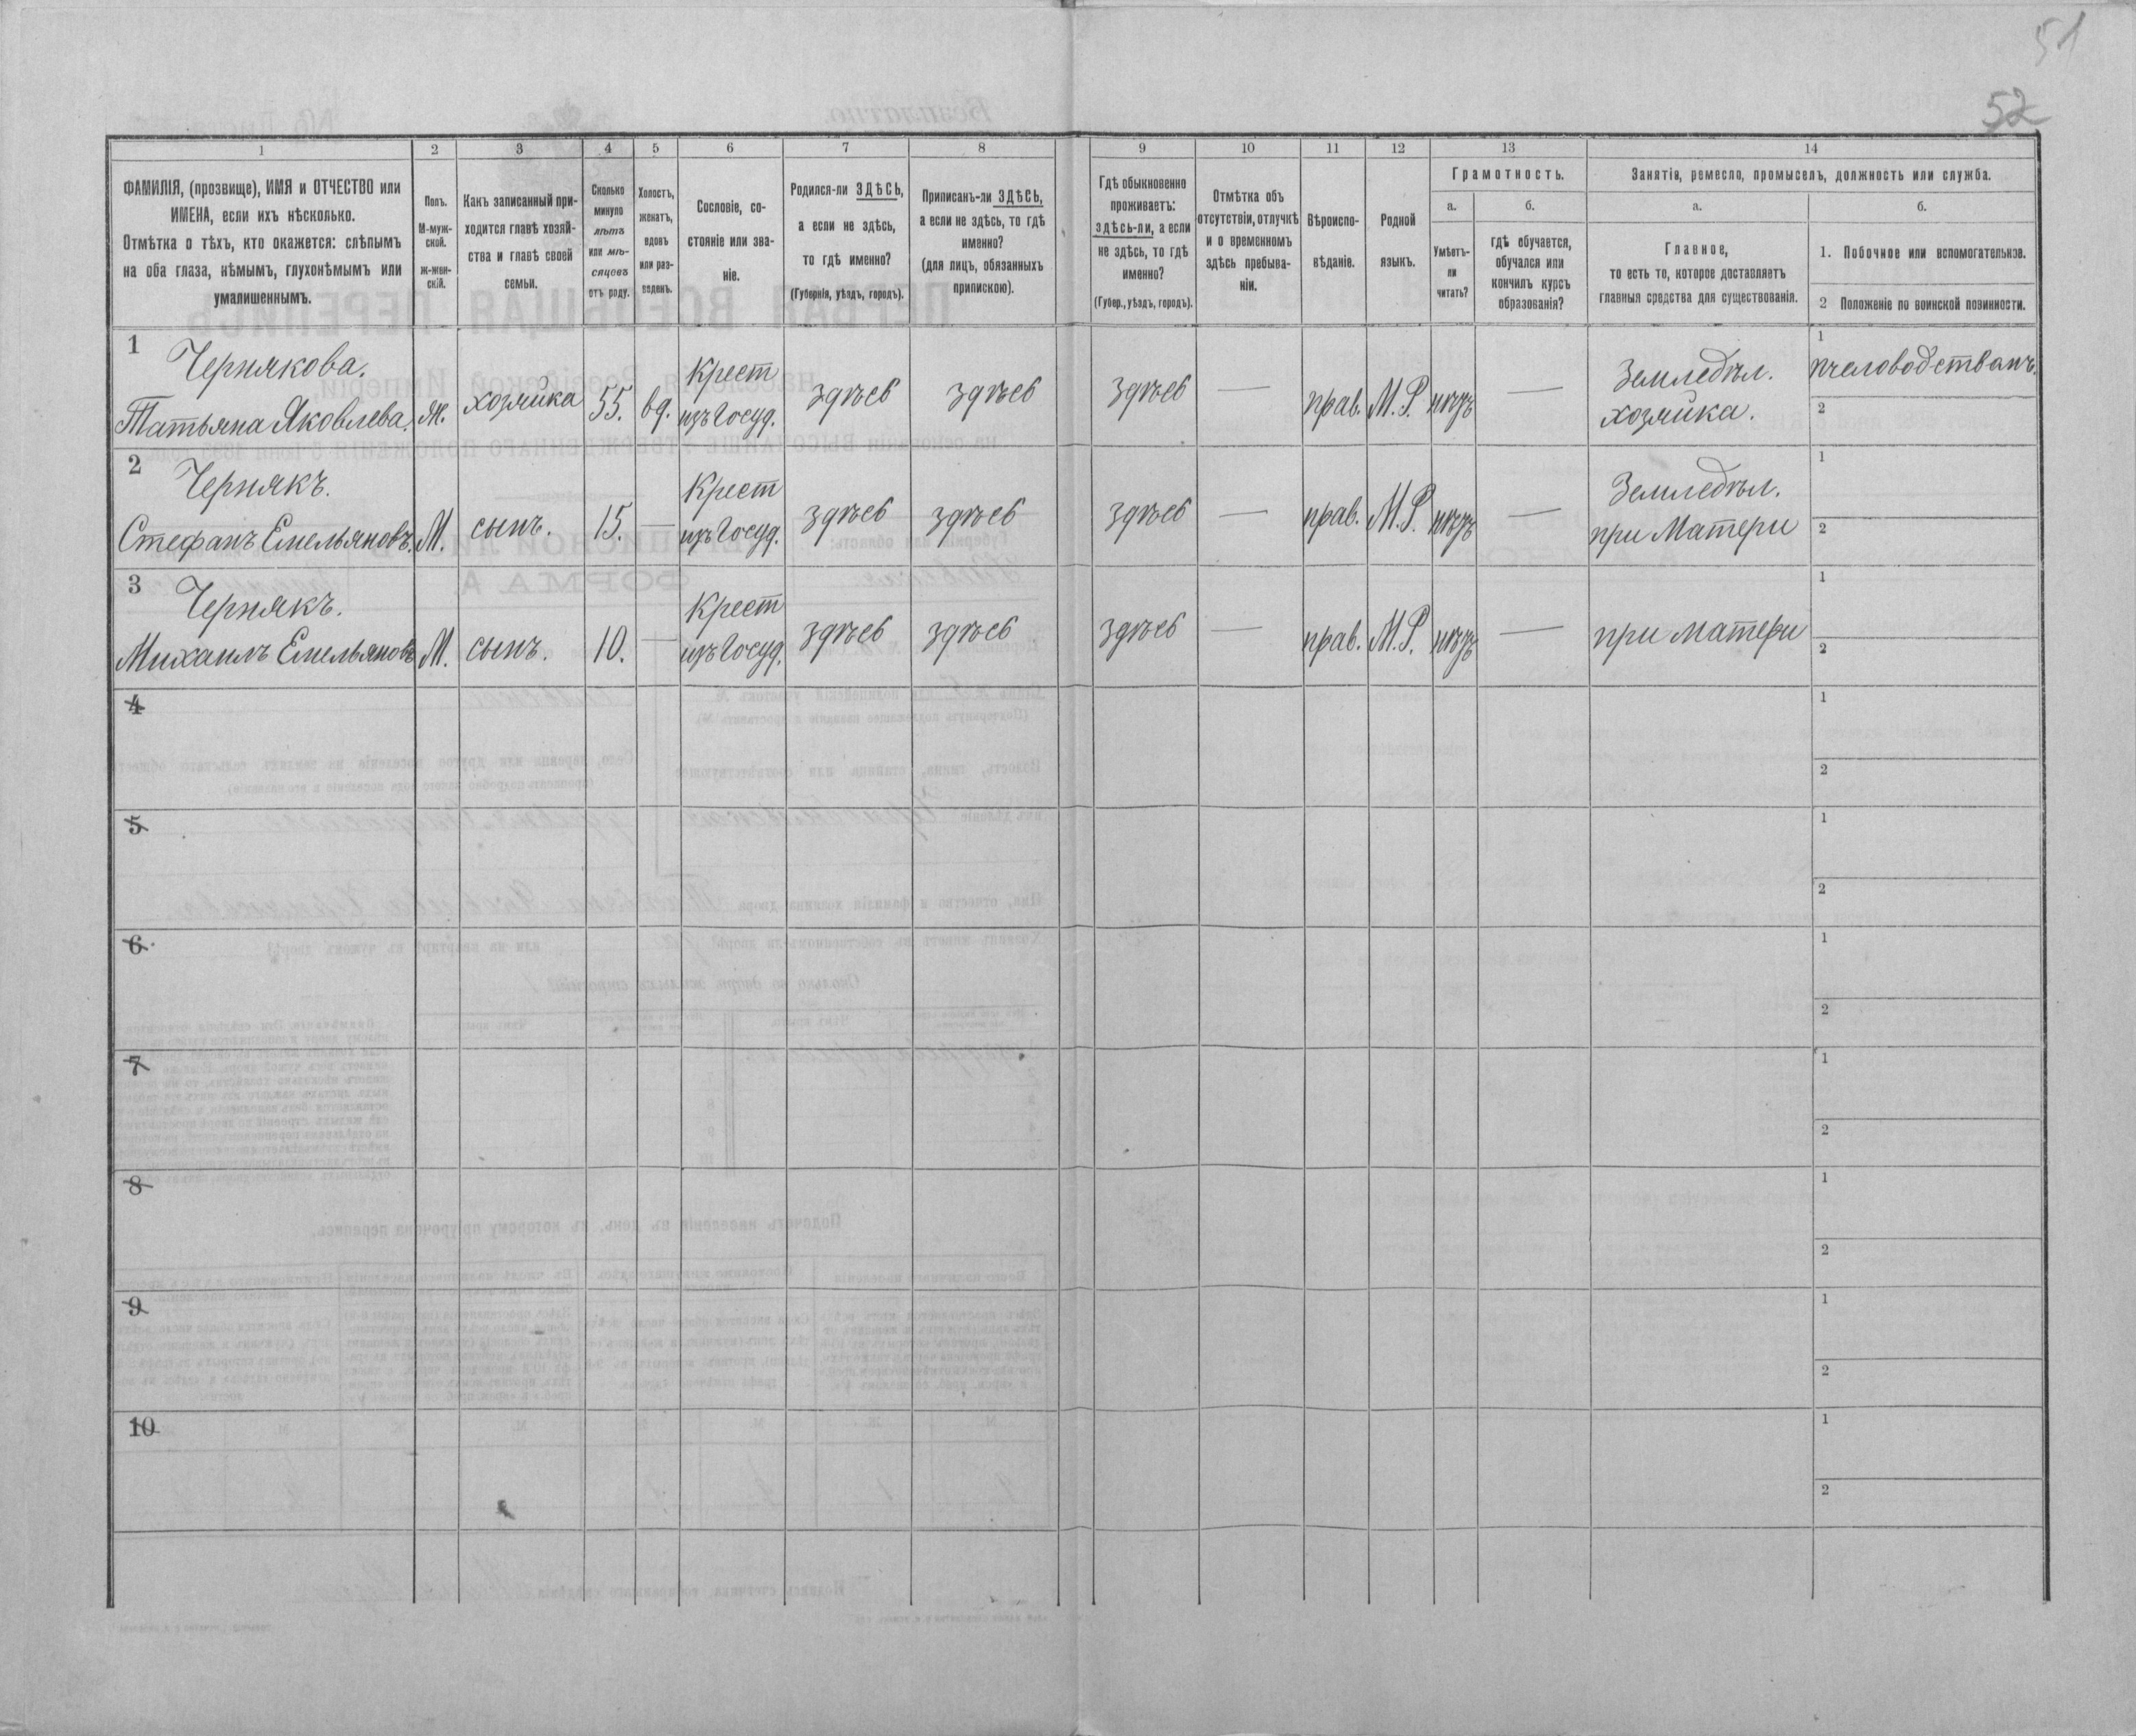 51
52
1 2 3 4 5 6 7 8 9 10 11 12 13 14
ФАМИЛІЯ, (прозвище), ИМЯ и ОТЧЕСТВО или
ИМЕНА, если ихъ нѣсколько.
Отмѣтка о тѣхъ, кто окажется: слѣпымъ
на оба глаза, нѣмымъ, глухонѣмымъ или
умалишеннымъ.
Полъ.
М-муж-
ской.
Ж-жен-
скій.
Какъ записанный при-
ходится главѣ хозяй-
ства и главѣ своей
семьи.
Сколько
минуло
лѣтъ
или мѣ-
сяцевъ
отъ роду.
Холостъ,
женатъ,
вдовъ
или раз-
веденъ.
Сословіе, со-
стояніе или зва-
ніе.
Родился-ли ЗДѢСЬ,
а если не здѣсь,
то гдѣ именно?
(Губернія, уѣздъ, городъ).
Приписанъ-ли ЗДѢСЬ,
а если не здѣсь, то гдѣ
именно?
(для лицъ, обязанныхъ
припискою).
Гдѣ обыкновенно
проживаетъ:
здѣсь-ли, а если
не здѣсь, то гдѣ
именно?
(Губер., уѣздъ, городъ).
Отмѣтка объ
отсутствіи, отлучкѣ
и о временномъ
здѣсь пребыва-
ніи.
Вѣроиспо-
вѣданіе.
Родной
языкъ.
Грамотность.
а.
Умѣетъ-
ли
читать?
б.
гдѣ обучается,
обучался или
кончилъ курсъ
образованія?
Занятія, ремесло, промыселъ, должность или служба.
а.
Главное,
то есть то, которое доставляетъ
главныя средства для существованія.
б.
1. Побочное или вспомогательное.
2 Положеніе по воинской повинности.
1 Чернякова.
Татьяна Яковлева.
Ж.
хозяйка
55.
вд.
Крест
изъ Госуд.
здѣсь
здѣсь
здѣсь
—
прав.
М.Р.
нѣтъ
—
Земледѣл.
хозяйка.
1
пчеловодствомъ.
2
2 Чернякъ.
Стефанъ Емельяновъ.
М.
сынъ.
15.
—
Крест
изъ Госуд.
здѣсь
здѣсь
здѣсь
—
прав.
М.Р.
нѣтъ
—
Земледѣл.
при Матери
1
2
3 Чернякъ.
Михаилъ Емельяновъ
М.
сынъ.
10.
—
Крест
изъ Госуд.
здѣсь
здѣсь
здѣсь
—
прав.
М.Р.
нѣтъ
—
при матери
1
2
4
1
2
5
1
2
6
1
2
7
1
2
8
1
2
9
1
2
10
1
2